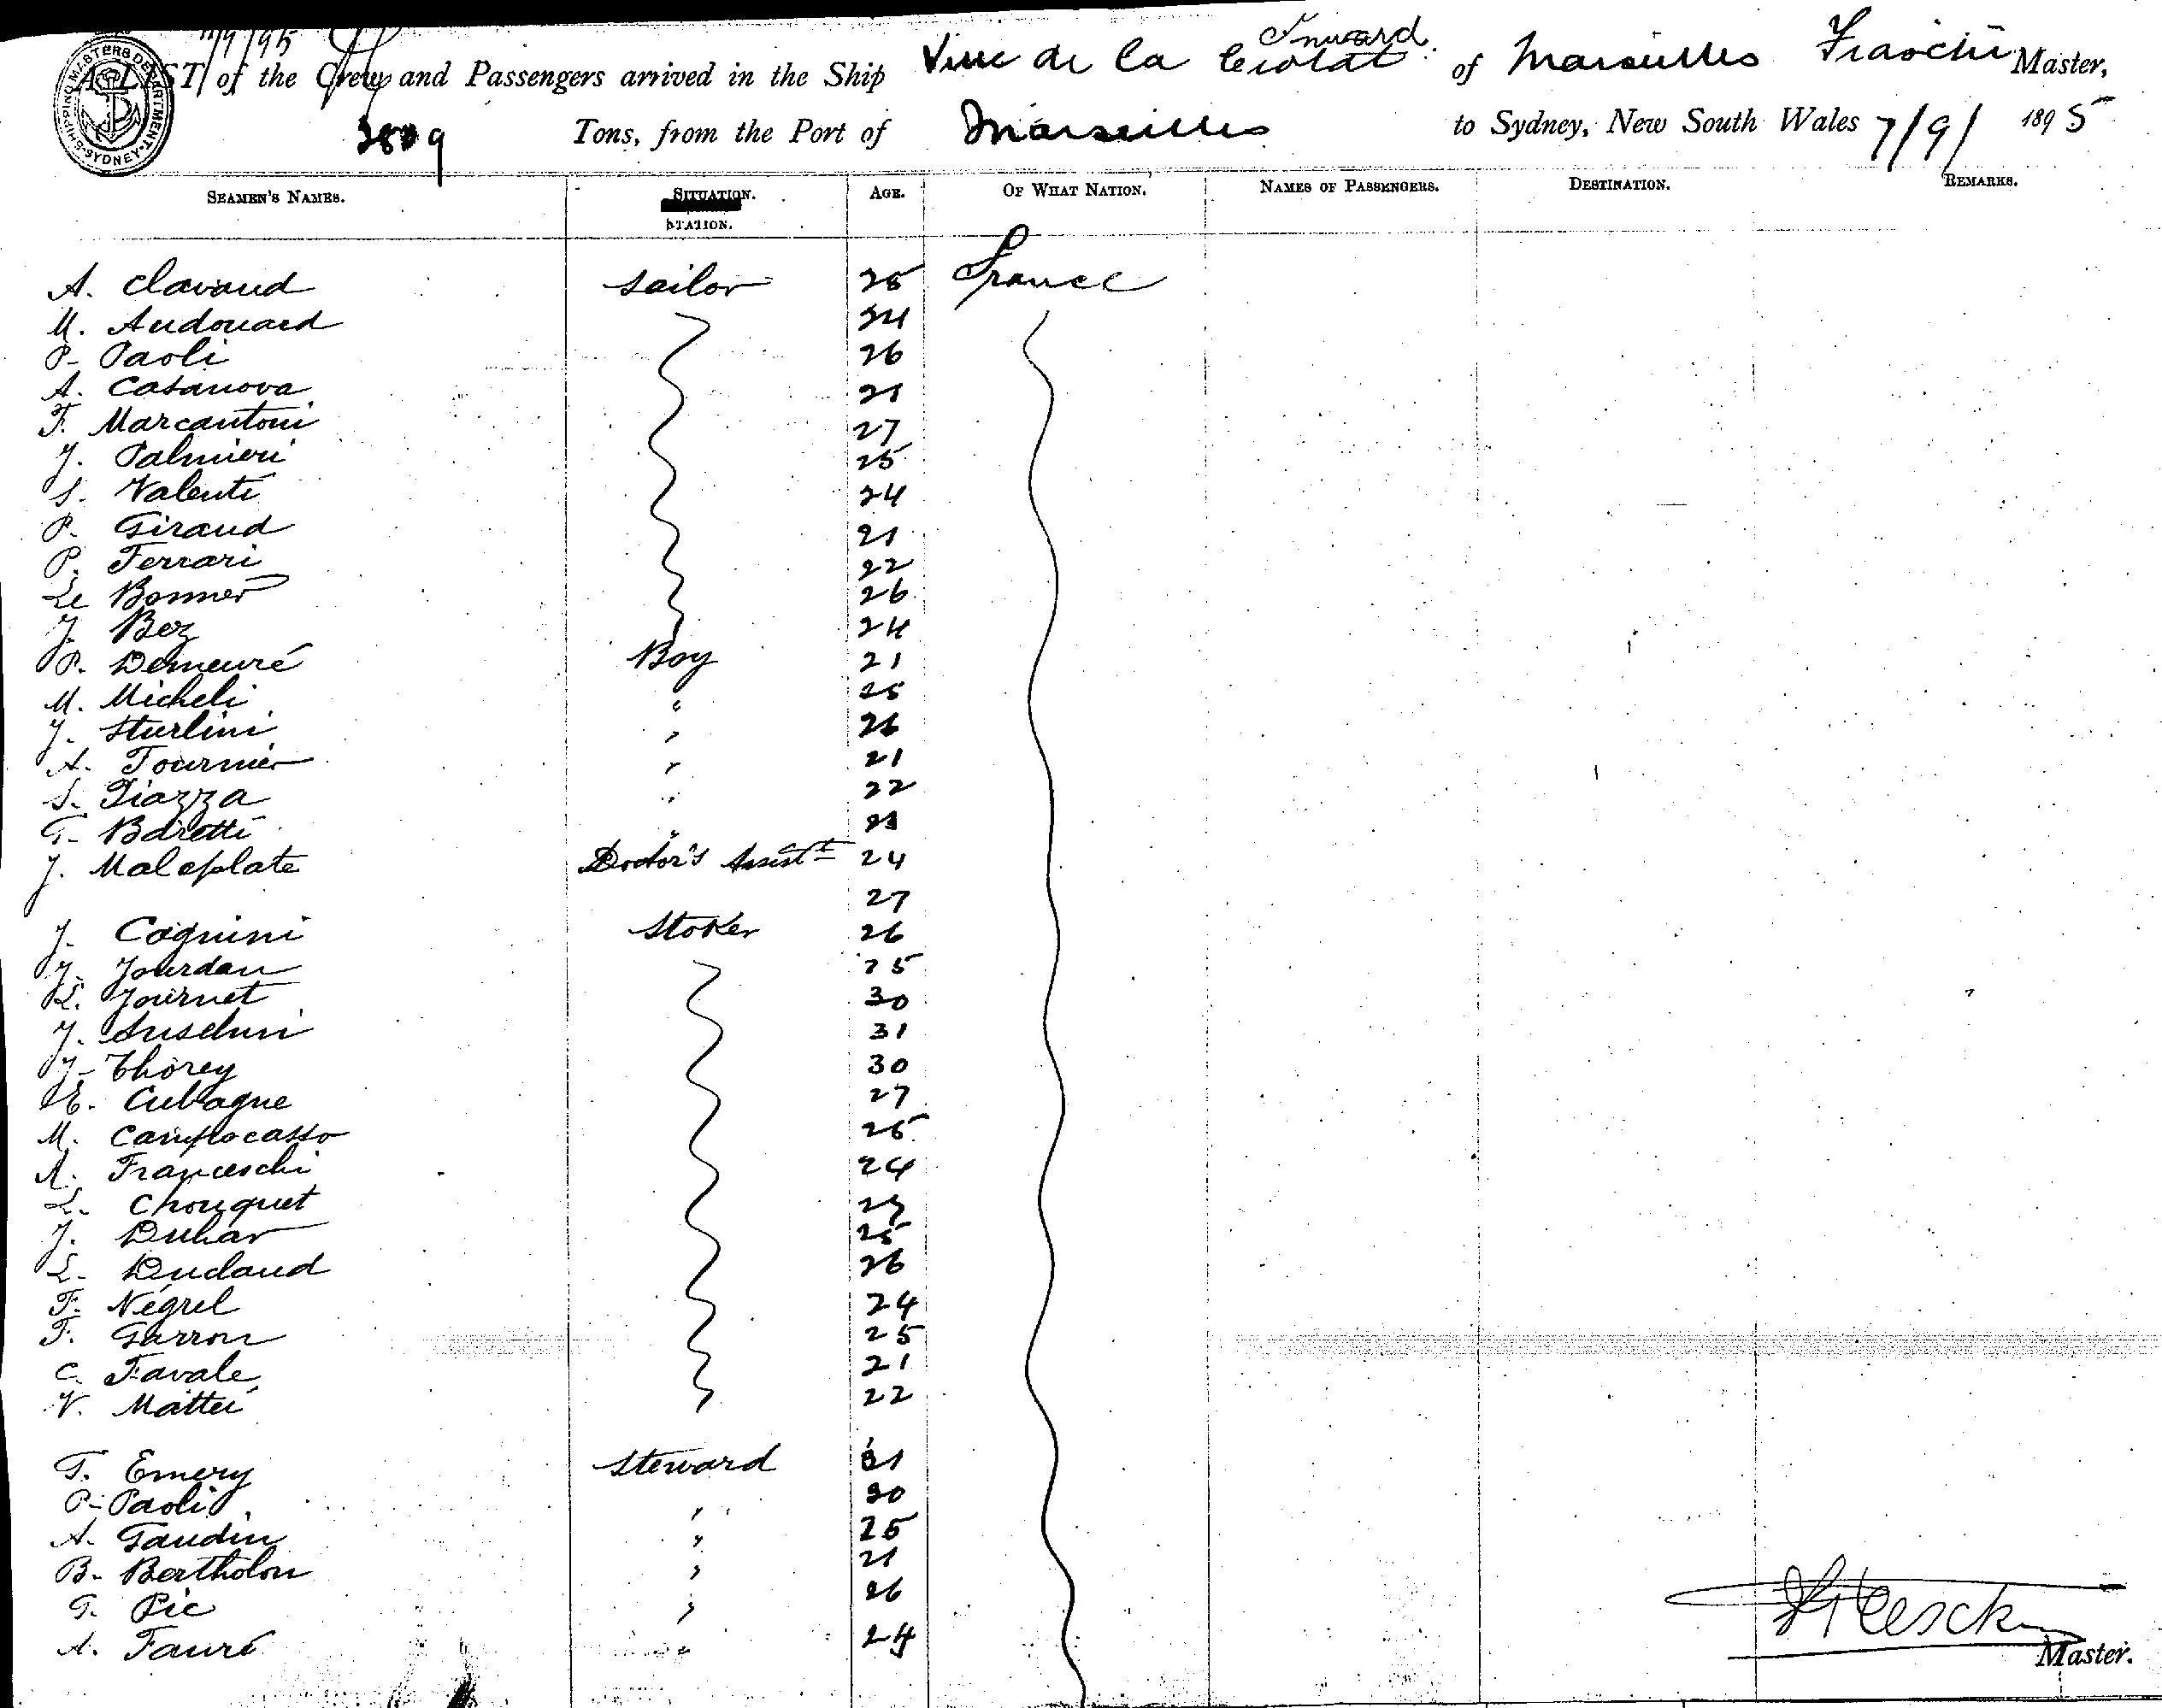 11/9/95
SHIPPING MASTERS DEPARTMENT SYDNEY
Inward.
A LIST of the Crew and Passengers arrived in the Ship Ville de la Ciotat of Marseilles Master,
3809 Tons, from the Port of Marseilles to Sydney, New South Wales 7/9/ 1895
SEAMEN'S NAMES. SITUATION. AGE. OF WHAT NATION. NAMES OF PASSENGERS. DESTINATION. REMARKS.
STATION.
A. Clavaud Sailor 25 France
M. Audouard 24
P. Paoli 26
A. Casanova 21
F. Marcantoni 27
J. Palmieri 25
S. Valenti 24
P. Giraud 21
P. Ferrari 22
Le Bonner 26
J. Bez 24
P. Demeuré Boy 21
M. Micheli " 25
J. Sturlini " 26
A. Tournier " 21
S. Piazza " 22
T. Baretti "
J. Maleplate Doctor's Assistt 24
27
J. Cognini Stoker 26
J. Jourdan 25
L. Journet 30
J. 31
J. Thorey 30
E. Cubagne 27
M. Campocasso 25
A. Franceschi 24
L. Chouquet
J. Duhar 25
L. Duclaud 26
F. Négrel 24
F. Garron 25
C. Favale 21
V. Mattei 22
T. Emery Steward 31
P. Paoli " 30
A. Gaudin " 25
B. Bertholon " 21
T. Pic " 26
A. Fauré " 24
Master.